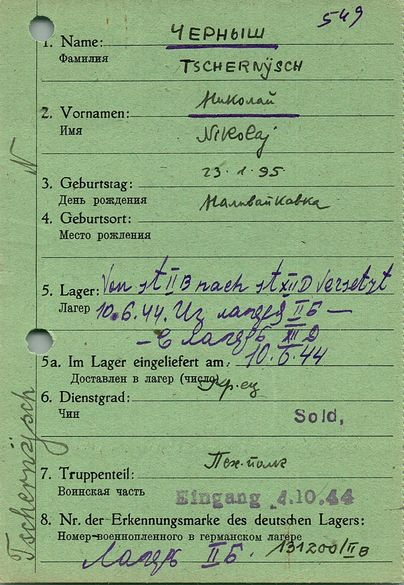 549
1. Name: ЧЕРНЫШ
Фамилия TSCHERNŸSCH
2. Vornamen: Николай
Имя Nikolaj
3. Geburtstag: 23.1.95
День рождения Наливайковка
4. Geburtsort:
Место рождения
5. Lager: Von St II B nach St XII D versetzt
Лагер 10.6.44. Из лагеря II Б —
— в лагерь XII D
5a. Im Lager eingeliefert am: 10.6.44
Доставлен в лагер (число)
6. Dienstgrad: Кр-ец
Чин Sold,
7. Truppenteil: Пех-полк
Воинская часть Eingang 4.10.44
8. Nr. der Erkennungsmarke des deutschen Lagers:
Номер военнопленного в германском лагере 131200/II B
Лагерь II Б.
Tschernÿsch N